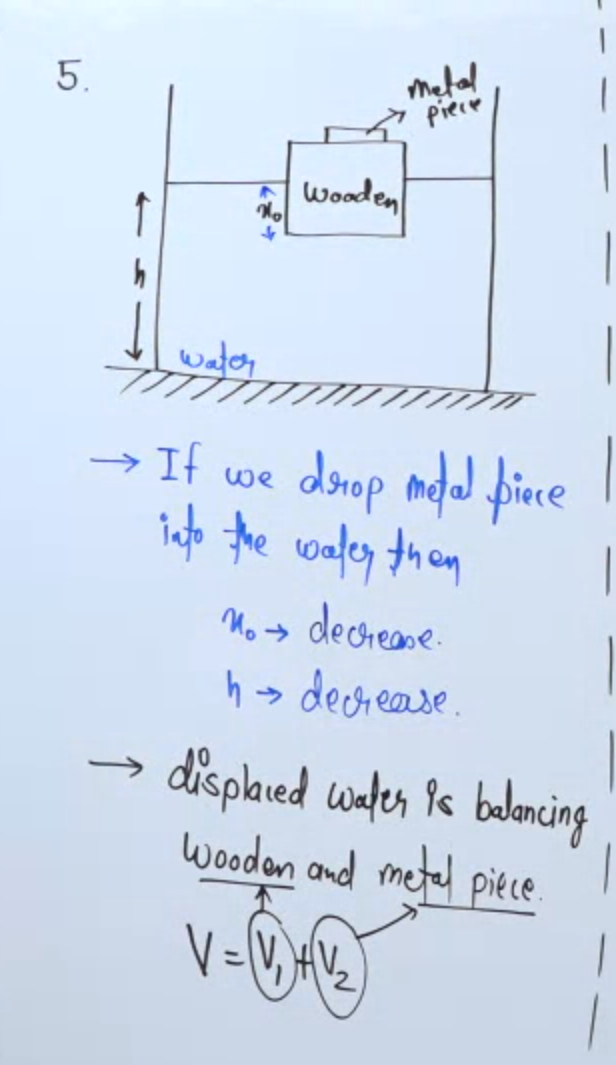 5.
metal
piece
Wooden
x₀
h
water
→ If we drop metal piece
into the water then
x₀ → decrease.
h → decrease.
→ displaced water is balancing
wooden and metal piece.
V = V₁ + V₂